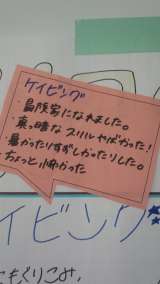 ケイビング
・冒険家になれました。
・真っ暗なスリルやばかった！
・暑かったりすずしかったりした。
・ちょっと怖かった
イビング
もぐりこみ、